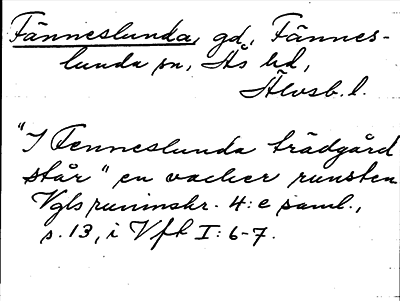 Fänneslunda, gd, Fännes-
lunda sn, Ås hd,
Älvsb. l.
"I Fenneslunda trädgård
står" en vacker runsten
Vgls runinskr. 4:e saml.,
s. 13, i Vft I: 6-7.